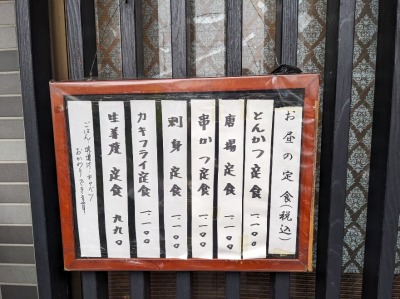 お昼の定食(税込)
とんかつ定食 一、一〇〇
唐揚定食 一、一〇〇
串かつ定食 一、一〇〇
刺身定食 一、一〇〇
カキフライ定食 一、一〇〇
生姜焼定食 九九〇
ごはん
おかわりできます